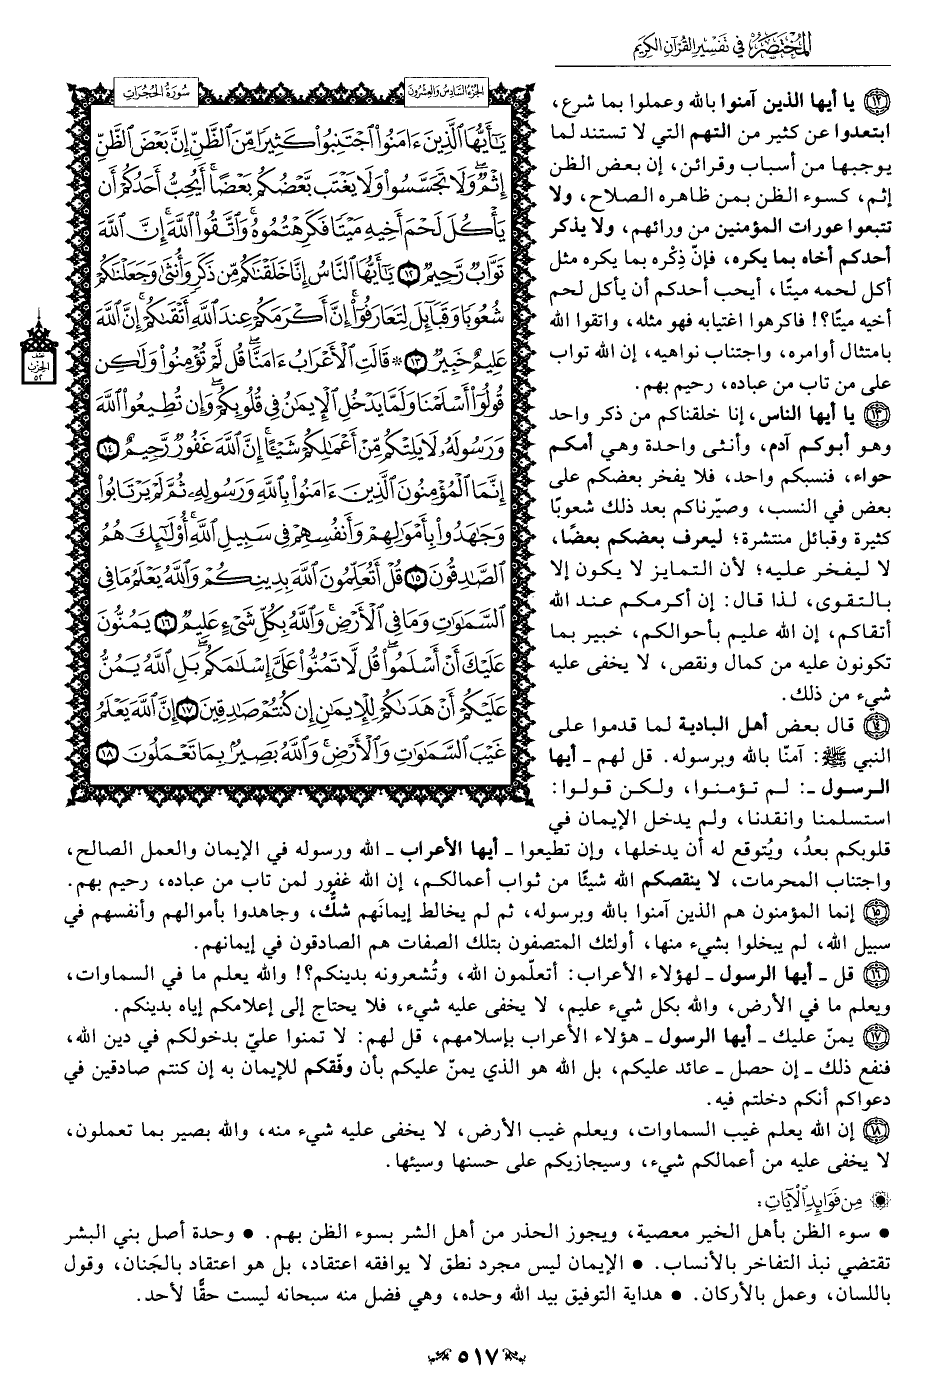 المختصر في تفسير القرآن الكريم
الجزء السادس والعشرون
سورة الحجرات
يَٰٓأَيُّهَا ٱلَّذِينَ ءَامَنُوا۟ ٱجْتَنِبُوا۟ كَثِيرًا مِّنَ ٱلظَّنِّ إِنَّ بَعْضَ ٱلظَّنِّ
إِثْمٌ ۖ وَلَا تَجَسَّسُوا۟ وَلَا يَغْتَب بَّعْضُكُم بَعْضًا ۚ أَيُحِبُّ أَحَدُكُمْ أَن
يَأْكُلَ لَحْمَ أَخِيهِ مَيْتًا فَكَرِهْتُمُوهُ ۚ وَٱتَّقُوا۟ ٱللَّهَ ۚ إِنَّ ٱللَّهَ
تَوَّابٌ رَّحِيمٌ ١٢ يَٰٓأَيُّهَا ٱلنَّاسُ إِنَّا خَلَقْنَٰكُم مِّن ذَكَرٍ وَأُنثَىٰ وَجَعَلْنَٰكُمْ
شُعُوبًا وَقَبَآئِلَ لِتَعَارَفُوٓا۟ ۚ إِنَّ أَكْرَمَكُمْ عِندَ ٱللَّهِ أَتْقَىٰكُمْ ۚ إِنَّ ٱللَّهَ
عَلِيمٌ خَبِيرٌ ١٣ * قَالَتِ ٱلْأَعْرَابُ ءَامَنَّا ۖ قُل لَّمْ تُؤْمِنُوا۟ وَلَٰكِن
قُولُوٓا۟ أَسْلَمْنَا وَلَمَّا يَدْخُلِ ٱلْإِيمَٰنُ فِى قُلُوبِكُمْ ۖ وَإِن تُطِيعُوا۟ ٱللَّهَ
وَرَسُولَهُۥ لَا يَلِتْكُم مِّنْ أَعْمَٰلِكُمْ شَيْـًٔا ۚ إِنَّ ٱللَّهَ غَفُورٌ رَّحِيمٌ ١٤
إِنَّمَا ٱلْمُؤْمِنُونَ ٱلَّذِينَ ءَامَنُوا۟ بِٱللَّهِ وَرَسُولِهِۦ ثُمَّ لَمْ يَرْتَابُوا۟
وَجَٰهَدُوا۟ بِأَمْوَٰلِهِمْ وَأَنفُسِهِمْ فِى سَبِيلِ ٱللَّهِ ۚ أُو۟لَٰٓئِكَ هُمُ
ٱلصَّٰدِقُونَ ١٥ قُلْ أَتُعَلِّمُونَ ٱللَّهَ بِدِينِكُمْ وَٱللَّهُ يَعْلَمُ مَا فِى
ٱلسَّمَٰوَٰتِ وَمَا فِى ٱلْأَرْضِ ۚ وَٱللَّهُ بِكُلِّ شَىْءٍ عَلِيمٌ ١٦ يَمُنُّونَ
عَلَيْكَ أَنْ أَسْلَمُوا۟ ۖ قُل لَّا تَمُنُّوا۟ عَلَىَّ إِسْلَٰمَكُم ۖ بَلِ ٱللَّهُ يَمُنُّ
عَلَيْكُمْ أَنْ هَدَىٰكُمْ لِلْإِيمَٰنِ إِن كُنتُمْ صَٰدِقِينَ ١٧ إِنَّ ٱللَّهَ يَعْلَمُ
غَيْبَ ٱلسَّمَٰوَٰتِ وَٱلْأَرْضِ ۚ وَٱللَّهُ بَصِيرٌۢ بِمَا تَعْمَلُونَ ١٨
نصف
الحزب
٥٢
١٢ يا أيها الذين آمنوا بالله وعملوا بما شرع،
ابتعدوا عن كثير من التهم التي لا تستند لما
يوجبها من أسباب وقرائن، إن بعض الظن
إثم، كسوء الظن بمن ظاهره الصلاح، ولا
تتبعوا عورات المؤمنين من ورائهم، ولا يذكر
أحدكم أخاه بما يكره، فإنّ ذِكْره بما يكره مثل
أكل لحمه ميتًا، أيحب أحدكم أن يأكل لحم
أخيه ميتًا؟! فاكرهوا اغتيابه فهو مثله، واتقوا الله
بامتثال أوامره، واجتناب نواهيه، إن الله تواب
على من تاب من عباده، رحيم بهم.
١٣ يا أيها الناس، إنا خلقناكم من ذكر واحد
وهو أبوكم آدم، وأنثى واحدة وهي أمكم
حواء، فنسبكم واحد، فلا يفخر بعضكم على
بعض في النسب، وصيّرناكم بعد ذلك شعوبًا
كثيرة وقبائل منتشرة؛ ليعرف بعضكم بعضًا،
لا ليفخر عليه؛ لأن التمايز لا يكون إلا
بالتقوى، لذا قال: إن أكرمكم عند الله
أتقاكم، إن الله عليم بأحوالكم، خبير بما
تكونون عليه من كمال ونقص، لا يخفى عليه
شيء من ذلك.
١٤ قال بعض أهل البادية لما قدموا على
النبي ﷺ: آمنّا بالله وبرسوله. قل لهم ـ أيها
الرسول ـ: لم تؤمنوا، ولكن قولوا:
استسلمنا وانقدنا، ولم يدخل الإيمان في
قلوبكم بعدُ، ويُتوقع له أن يدخلها، وإن تطيعوا ـ أيها الأعراب ـ الله ورسوله في الإيمان والعمل الصالح،
واجتناب المحرمات، لا ينقصكم الله شيئًا من ثواب أعمالكم، إن الله غفور لمن تاب من عباده، رحيم بهم.
١٥ إنما المؤمنون هم الذين آمنوا بالله وبرسوله، ثم لم يخالط إيمانَهم شكٌّ، وجاهدوا بأموالهم وأنفسهم في
سبيل الله، لم يبخلوا بشيء منها، أولئك المتصفون بتلك الصفات هم الصادقون في إيمانهم.
١٦ قل ـ أيها الرسول ـ لهؤلاء الأعراب: أتعلّمون الله، وتُشعرونه بدينكم؟! والله يعلم ما في السماوات،
ويعلم ما في الأرض، والله بكل شيء عليم، لا يخفى عليه شيء، فلا يحتاج إلى إعلامكم إياه بدينكم.
١٧ يمنّ عليك ـ أيها الرسول ـ هؤلاء الأعراب بإسلامهم، قل لهم: لا تمنوا عليّ بدخولكم في دين الله،
فنفع ذلك ـ إن حصل ـ عائد عليكم، بل الله هو الذي يمنّ عليكم بأن وفّقكم للإيمان به إن كنتم صادقين في
دعواكم أنكم دخلتم فيه.
١٨ إن الله يعلم غيب السماوات، ويعلم غيب الأرض، لا يخفى عليه شيء منه، والله بصير بما تعملون،
لا يخفى عليه من أعمالكم شيء، وسيجازيكم على حسنها وسيئها.
من فوائد الآيات:
• سوء الظن بأهل الخير معصية، ويجوز الحذر من أهل الشر بسوء الظن بهم. • وحدة أصل بني البشر
تقتضي نبذ التفاخر بالأنساب. • الإيمان ليس مجرد نطق لا يوافقه اعتقاد، بل هو اعتقاد بالجَنان، وقول
باللسان، وعمل بالأركان. • هداية التوفيق بيد الله وحده، وهي فضل منه سبحانه ليست حقًّا لأحد.
٥١٧